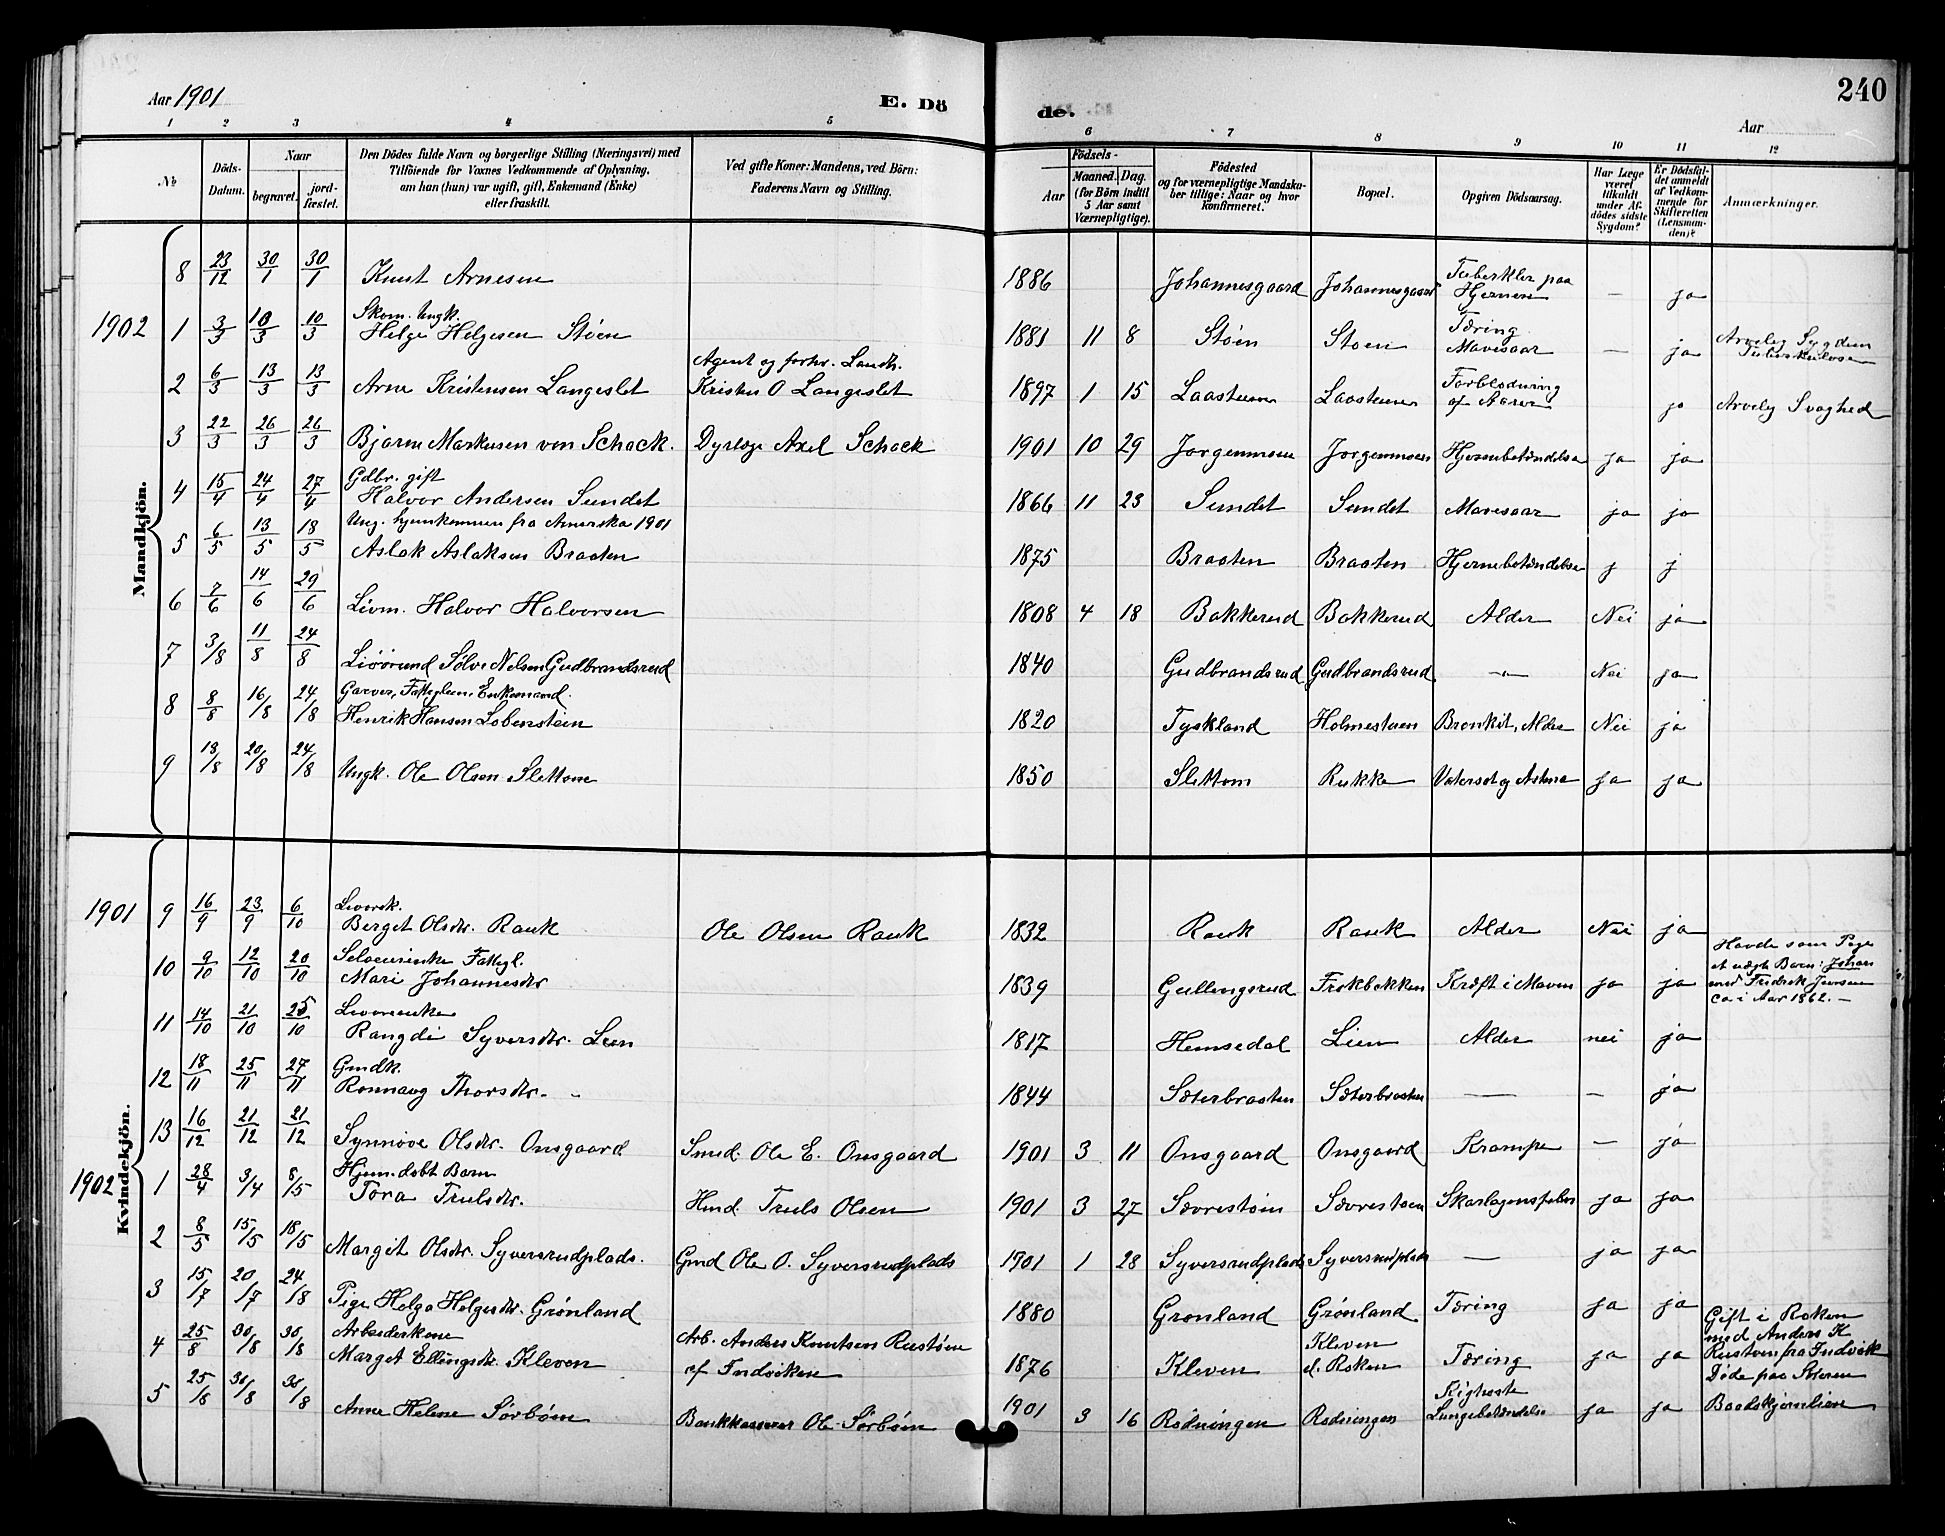 240
Aar 1901
E. Dö
de.
Aar
1 2 3 4 5
6 7 8 9 10 11 12
No
Döds-Datum.
Naar
begravet.
jordfæstet.
Den Dödes fulde Navn og borgerlige Stilling (Næringsvei) med
Tilföiende for Voxnes Vedkommende af Oplysning,
om han (hun) var ugift, gift, Enkemand (Enke)
eller fraskilt.
Ved gifte Koner: Mandens, ved Börn:
Faderens Navn og Stilling.
Födsels-
Aar
Maaned. Dag.
(for Börn indtil
5 Aar samt
Værnepligtige).
Födested
og for værnepligtige Mandska-
ber tillige: Naar og hvor
konfirmeret.
Bopæl.
Opgiven Dödsaarsag.
Har Læge
været
tilkaldt
under Af-
dödes sidste
Sygdom?
Er Dödsfal-
det anmeldt
af Vedkom-
mende for
Skifteretten
(Lensman-
den)?
Anmærkninger.
Mandkjön.
8 23/12 30/1 30/1 Knut Arnesen 1886 Johannesgaard Johannesgaard Tuberkler paa Hjernen — ja
1902 1 3/3 10/3 10/3 Skom. Ungk. Helge Helgesen Støen 1881 11 8 Støen Stoen Tæring Mavesaar — ja Arvelig Sygdom Tuberkulose
2 6/3 13/3 13/3 Arne Kristensen Langeslet Agent og forhv. Landh. Kristen O Langeslet 1897 1 15 Laasteinen Laasteinen Forblødning af Aarer ja Arvelig Svaghed
3 22/3 26/3 26/3 Bjarne Markusen von Schack. Dyrlæge Axel Schack 1901 10 29 Jorgenmoen Jorgenmoen Hjernebetændelse ja ja
4 15/4 24/4 27/4 Gdbr. gift Halvor Andersen Sundet 1866 11 23 Sundet Sundet Mavesaar ja ja
5 6/5 13/5 18/5 Ung. hjemkommen fra Amerika 1901 Aslak Aslaksen Braaten 1875 Braaten Braaten Hjernebetændelse j j
6 7/6 14/6 29/6 Livm. Halvor Halvorsen 1808 4 18 Bakkerud Bakkerud Alder Nei ja
7 3/8 11/8 24/8 Sølve Nelsen Gudbrandsrud 1840 Gudbrandsrud Gudbrandsrud —"— Nei ja
8 8/8 16/8 24/8 Garver, Fattiglem, Enkemand. Henrik Hansen Lobenstein 1820 Tyskland Holmestoen Bronkit, Alder Nei ja
9 13/8 20/8 24/8 Ungk. Ole Olsen Slettom 1850 Slettom Rukke Vatersot og Astma ja ja
Kvindekjön.
1901 9 16/9 23/9 6/10 Livørek. Berget Olsdtr. Rauk Ole Olsen Rauk 1832 Rauk Rauk Alder Nei ja
10 9/10 12/10 20/10 Selveierenke Fattigl. Mari Johannesdtr 1839 Gullingsrud Frokbakken Kræft i Maven ja ja Havde som Pige et uægte Barn: Johan med Fredrik Jversen ca i Aar 1862. —
11 14/10 21/10 25/10 Livørenke Rangdi Syversdtr. Lien 1817 Hemsedal Lien Alder nei ja
12 18/11 25/11 27/11 Gmdk. Ronnaug Thorsdtr. - 1844 Sæterbraaten Sæterbraaten — — ja
13 16/12 21/12 21/12 Synnøve Olsdtr. Onsgaard Smed. Ole E. Onsgaard 1901 3 11 Onsgaard Onsgaard Krampe — ja
1902 1 28/4 3/4 8/5 Hjem. døbt Barn Tora Trulsdtr. Hmd. Truls Olsen 1901 3 27 Sævrestøen Sævrestøen Skarlagensfeber ja ja
2 8/5 15/5 18/5 Margit Olsdtr. Syversrudplads. Gmd Ole O. Syversrudplads 1901 1 28 Syversrudplads Syversrudplads — ja ja
3 15/7 20/7 24/8 Pige Helga Helgesdtr. Grönland 1880 Gronland Grønland Tæring ja ja
4 25/8 30/8 30/8 Arbeiderkone Marget Ellingsdtr. Kleven Arb. Anders Knutsen Rustøen af Indviken 1876 Kleven Kleven d. Røken Tæring ja ja Gift i Roken med Anders K Rustøen fra Indvik Døde paa
5 25/8 30/8 30/8 Anne Helene Sörbøen Bankkasserer Ole Sörbøen 1901 3 16 Rødningen Rodningen Kighoste Lungebetændelse ja ja